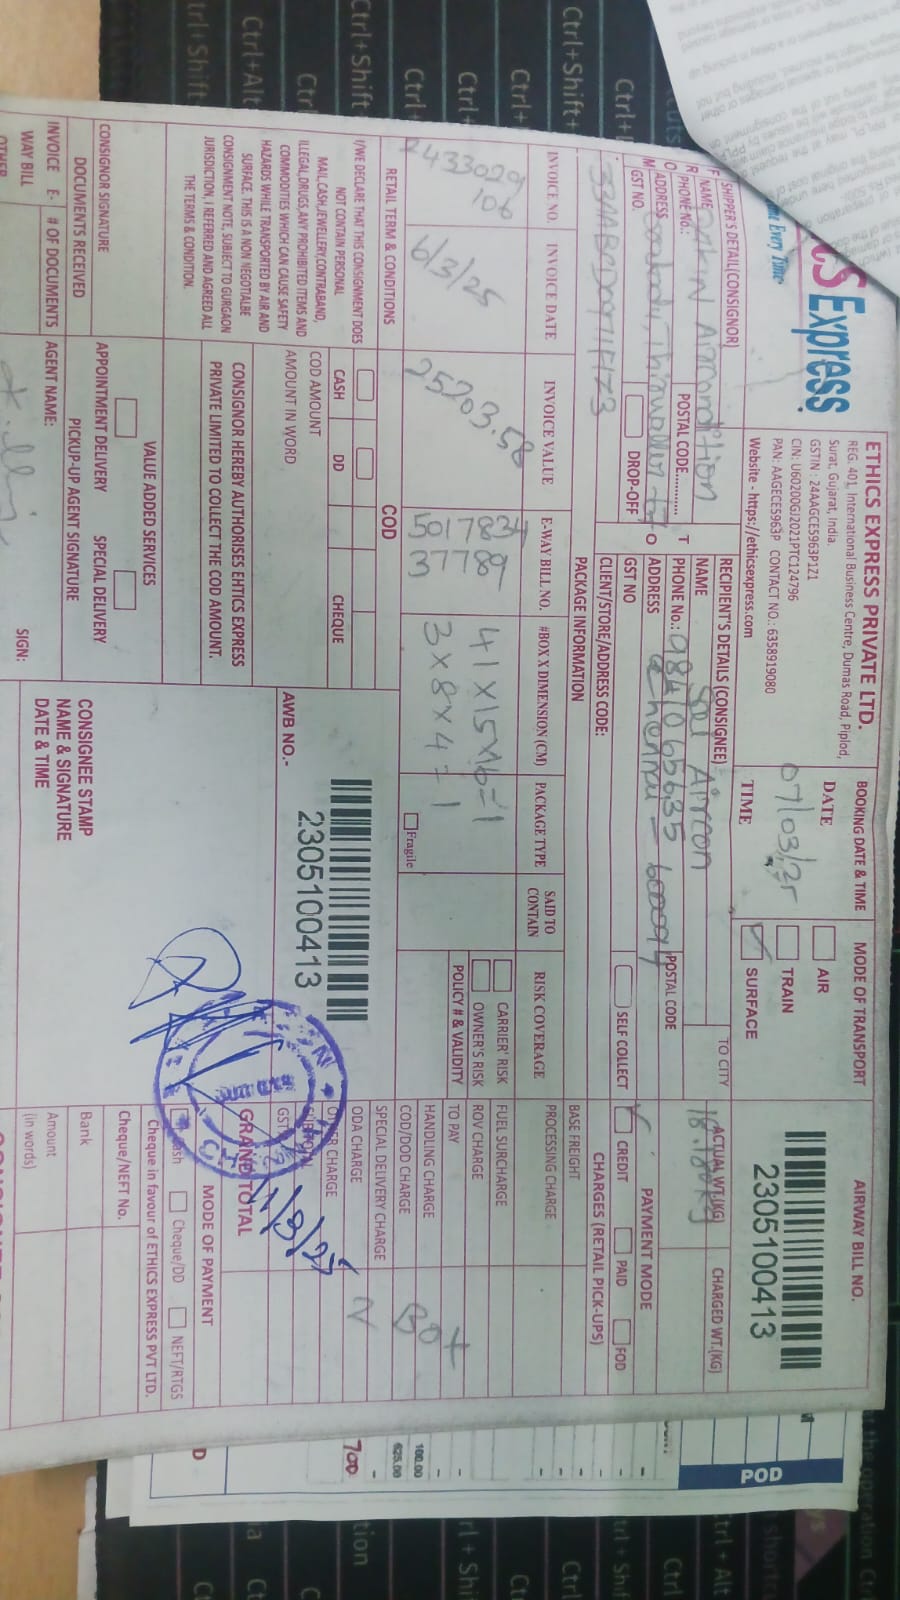 CS Express
ETHICS EXPRESS PRIVATE LTD.
REG. 401, International Business Centre, Dumas Road, Piplod,
Surat, Gujarat, India.
GSTIN : 24AAGCE5963P1Z1
CIN: U60200GJ2021PTC124796
PAN: AAGECE5963P CONTACT NO.: 6358919080
Website - https://ethicsexpress.com
BOOKING DATE & TIME
DATE
07/03/25
TIME
MODE OF TRANSPORT
AIR
TRAIN
SURFACE
AIRWAY BILL NO.
2305100413
SHIPPER'S DETAIL(CONSIGNOR)
NAME Daikin Aircondition
PHONE No.:
POSTAL CODE
ADDRESS
GST NO.
DROP-OFF
33AABCD0971F1Z3
TO
RECIPIENT'S DETAILS (CONSIGNEE)
NAME Sel Aircon
PHONE No.: 9841065635
POSTAL CODE
ADDRESS Chennai - 600094
GST NO
SELF COLLECT
CLIENT/STORE/ADDRESS CODE:
TO CITY
ACTUAL WT.(KG)
CHARGED WT.(KG)
PAYMENT MODE
CREDIT
PAID
FOD
PACKAGE INFORMATION
CHARGES (RETAIL PICK-UPS)
INVOICE NO.
INVOICE DATE
INVOICE VALUE
E-WAY BILL NO.
#BOX X DIMENSION (CM)
PACKAGE TYPE
SAID TO CONTAIN
RISK COVERAGE
7433029
106
6/3/25
25203.58
5017834
37789
41x15x16=1
3x8x4=1
Fragile
CARRIER' RISK
OWNER'S RISK
POLICY # & VALIDITY
BASE FREIGHT
PROCESSING CHARGE
FUEL SURCHARGE
ROV CHARGE
TO PAY
HANDLING CHARGE
COD/DOD CHARGE
SPECIAL DELIVERY CHARGE
ODA CHARGE
GRAND TOTAL
Box
2
RETAIL TERM & CONDITIONS
I/WE DECLARE THAT THIS CONSIGNMENT DOES
NOT CONTAIN PERSONAL
MAIL,CASH,JEWELLERY,CONTRABAND,
ILLEGAL,DRUGS,ANY PROHIBITED ITEMS AND
COMMODITIES WHICH CAN CAUSE SAFETY
HAZARDS WHILE TRANSPORTED BY AIR AND
SURFACE. THIS IS A NON NEGOTIALBE
CONSIGNMENT NOTE, SUBJECT TO GURGAON
JURISDICTION, I REFERRED AND AGREED ALL
THE TERMS & CONDITION.
COD
CASH
DD
CHEQUE
COD AMOUNT
AMOUNT IN WORD
CONSIGNOR HEREBY AUTHORISES ENTICS EXPRESS
PRIVATE LIMITED TO COLLECT THE COD AMOUNT.
AWB NO.-
2305100413
CONSIGNOR SIGNATURE
VALUE ADDED SERVICES
APPOINTMENT DELIVERY
SPECIAL DELIVERY
DOCUMENTS RECEIVED
PICKUP-UP AGENT SIGNATURE
INVOICE E-WAY BILL
# OF DOCUMENTS
AGENT NAME:
SIGN:
CONSIGNEE STAMP
NAME & SIGNATURE
DATE & TIME
MODE OF PAYMENT
Cheque/DD
NEFT/RTGS
Cheque in favour of ETHICS EXPRESS PVT LTD.
Cheque/NEFT No.
Bank
Amount
(in words)
POD
100.00
625.00
700